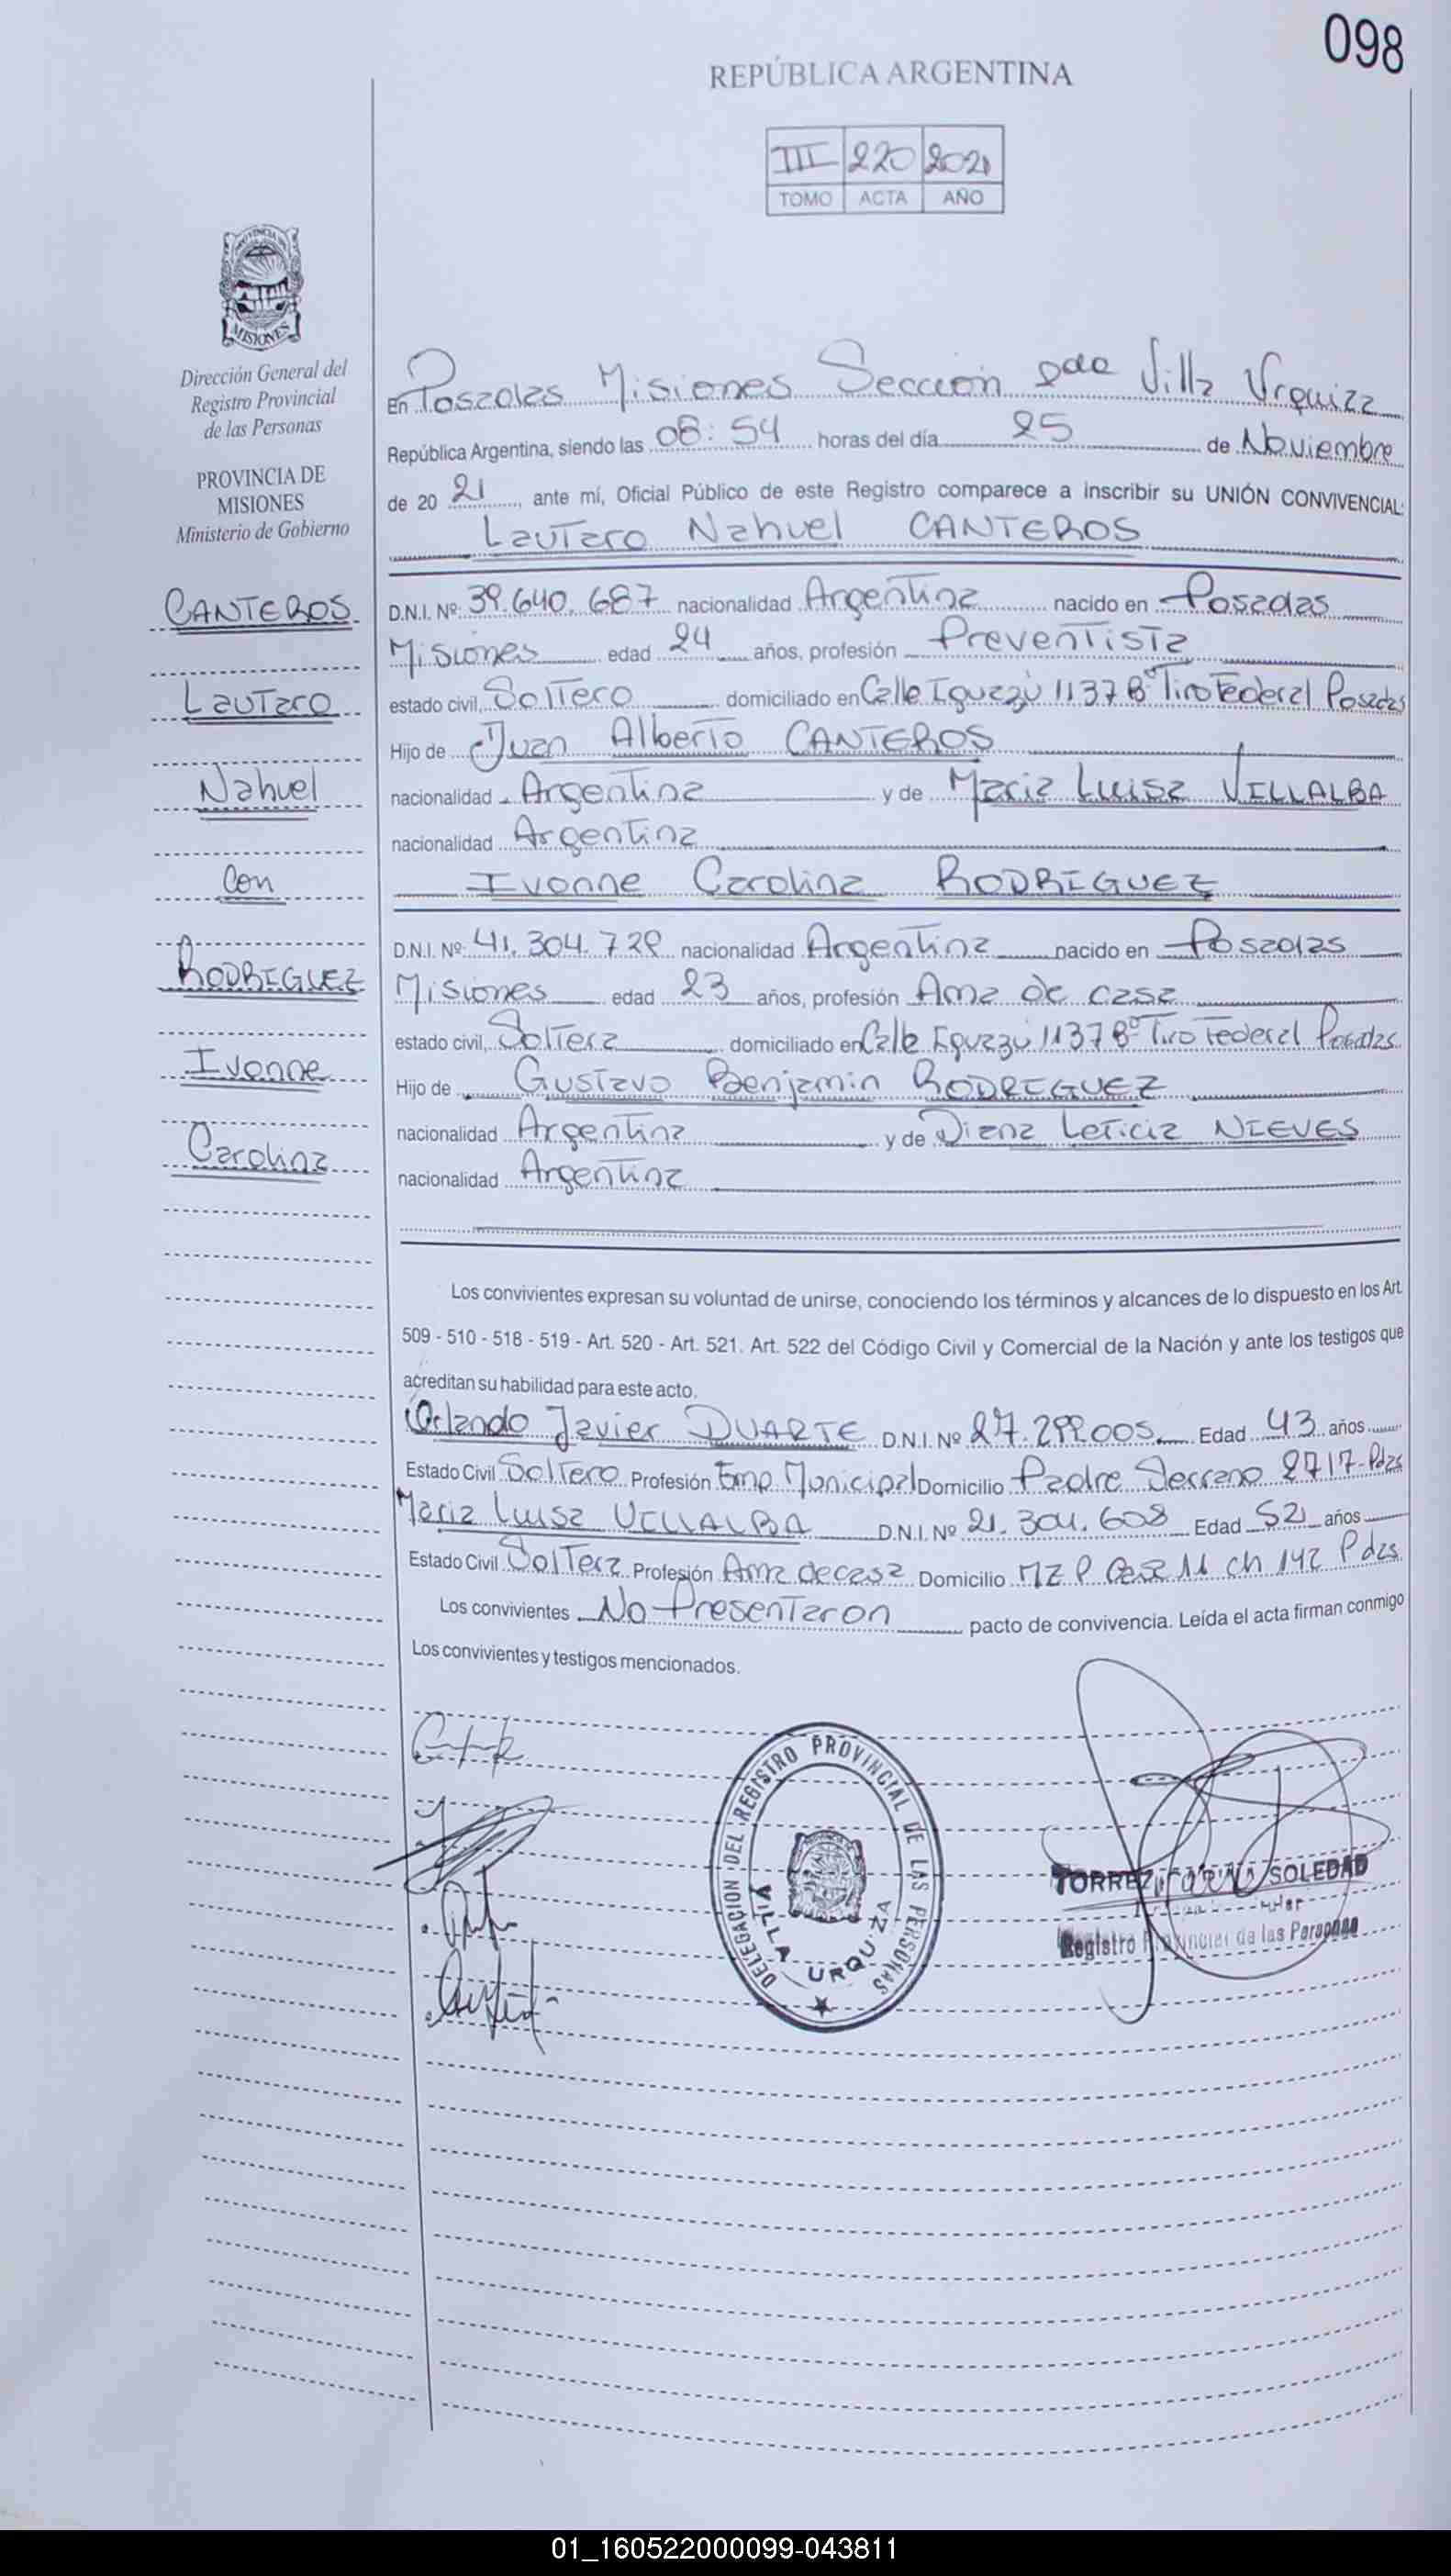 098
REPÚBLICA ARGENTINA
III 220 2021
TOMO ACTA AÑO
PROVINCIA DE
MISIONES
Dirección General del
Registro Provincial
de las Personas
PROVINCIA DE
MISIONES
Ministerio de Gobierno
CANTEROS
Lautaro
Nahuel
Con
RODRIGUEZ
Ivonne
Carolina
En Posadas Misiones Sección 2da Villa Urquiza
República Argentina, siendo las 08:54 horas del día 25 de Noviembre
de 20 21, ante mí, Oficial Público de este Registro comparece a inscribir su UNIÓN CONVIVENCIAL:
Lautaro Nahuel CANTEROS
D.N.I. Nº: 39.640.687 nacionalidad Argentina nacido en Posadas
Misiones edad 24 años, profesión Preventista
estado civil, Soltero domiciliado en Calle Iguazú 1137 Bº Tiro Federal Posadas
Hijo de Juan Alberto CANTEROS
nacionalidad Argentina y de Maria Luisa VILLALBA
nacionalidad Argentina
Ivonne Carolina RODRIGUEZ
D.N.I. Nº: 41.304.729 nacionalidad Argentina nacido en Posadas
Misiones edad 23 años, profesión Ama de casa
estado civil, Soltera domiciliado en Calle Iguazú 1137 Bº Tiro Federal Posadas
Hijo de Gustavo Benjamin RODRIGUEZ
nacionalidad Argentina y de Diana Leticia NIEVES
nacionalidad Argentina
Los convivientes expresan su voluntad de unirse, conociendo los términos y alcances de lo dispuesto en los Art.
509 - 510 - 518 - 519 - Art. 520 - Art. 521. Art. 522 del Código Civil y Comercial de la Nación y ante los testigos que
acreditan su habilidad para este acto.
Orlando Javier DUARTE D.N.I. Nº 27.299.005 Edad 43 años
Estado Civil Soltero Profesión Emp. Municipal Domicilio Padre Serrano 2717-Pdas
Maria Luisa VILLALBA D.N.I. Nº 21.304.608 Edad 52 años
Estado Civil Soltera Profesión Ama de casa Domicilio MZ P Casa 11 ch 142 Pdas
Los convivientes No Presentaron pacto de convivencia. Leída el acta firman conmigo
Los convivientes y testigos mencionados.
DELEGACION DEL REGISTRO PROVINCIAL DE LAS PERSONAS
VILLA URQUIZA
TORREZ SOLEDAD
Registro Provincial de las Personas
01_160522000099-043811